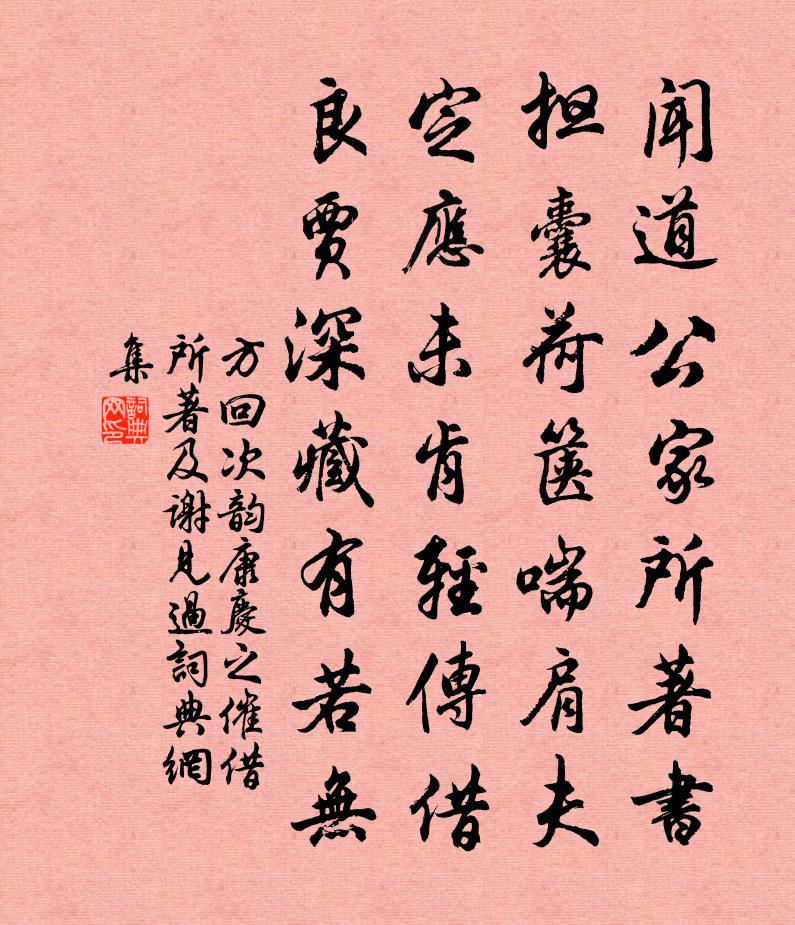 聞道公家所著書
担囊荷篋喘肩夫
定應未肯輕傳借
良賈深藏有若無
方回次韵康慶之催借
所著及謝見過詞典網
集
詞典
网印